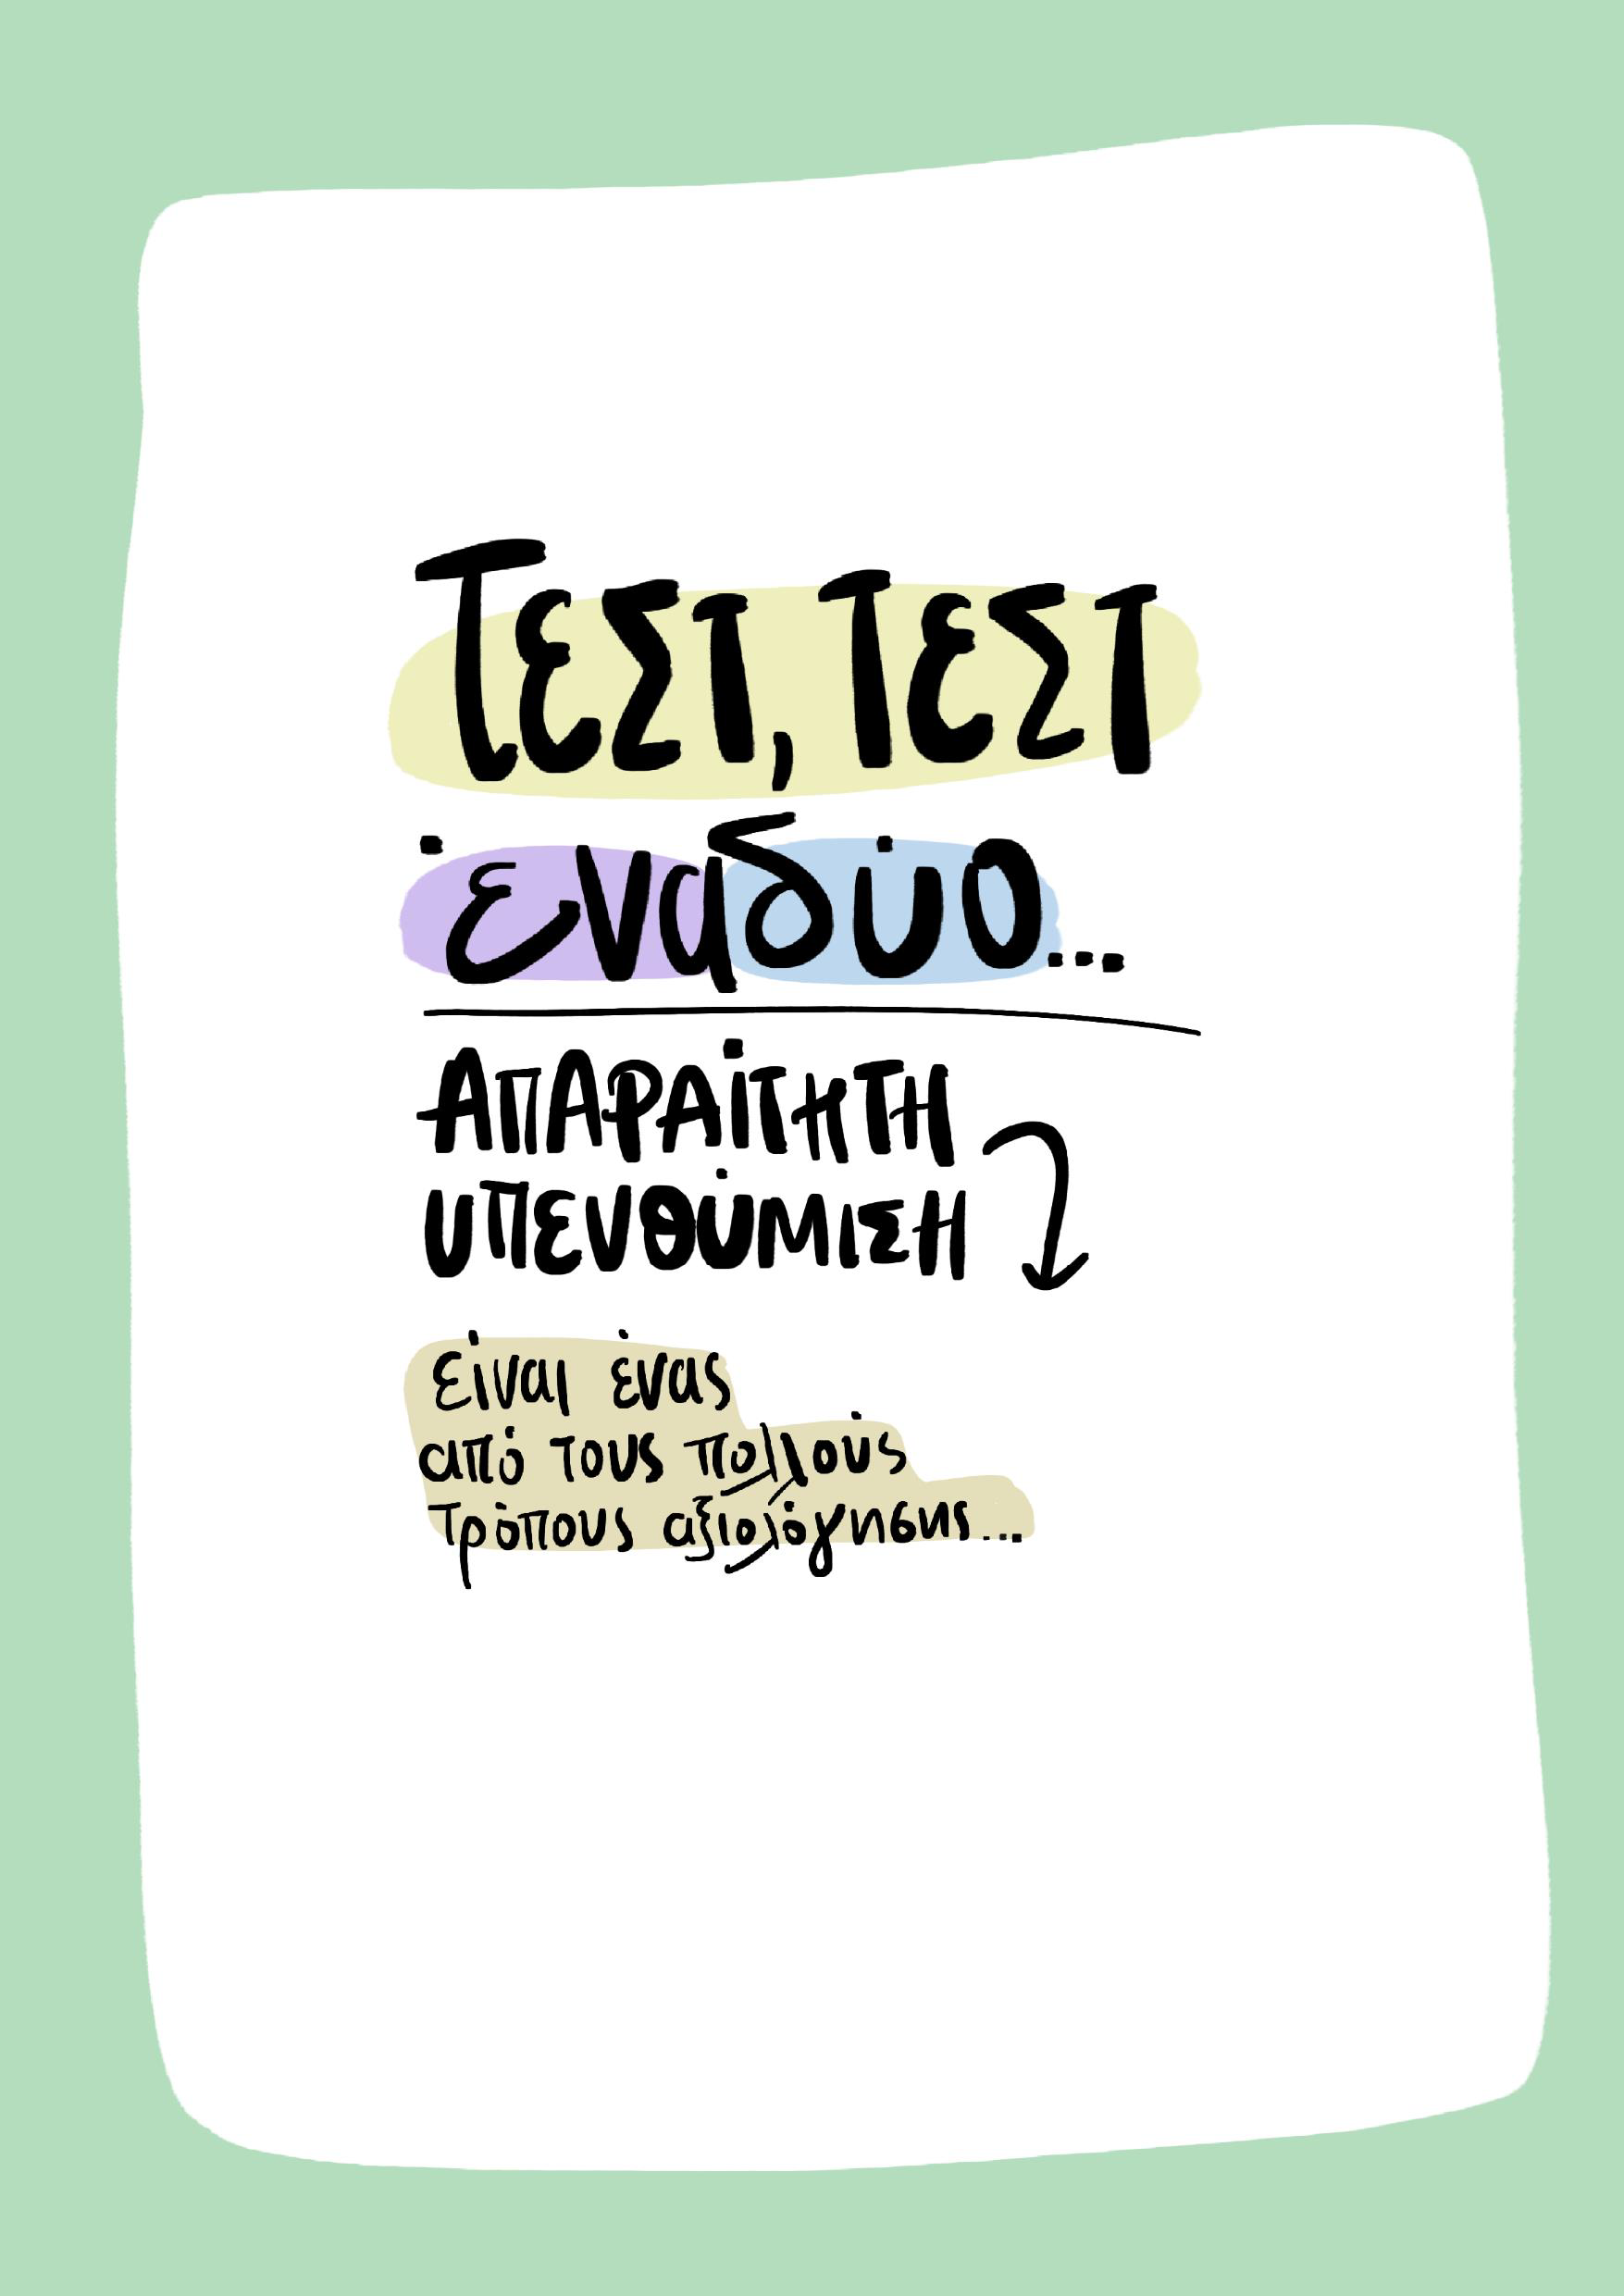 Τεστ, Τεστ
ένα δύο...
ΑΠΑΡΑΊΤΗΤΗ
ΥΠΕΝΘΎΜΙΣΗ
είναι ένας
από τους πολλούς
τρόπους αξιολόγησης...